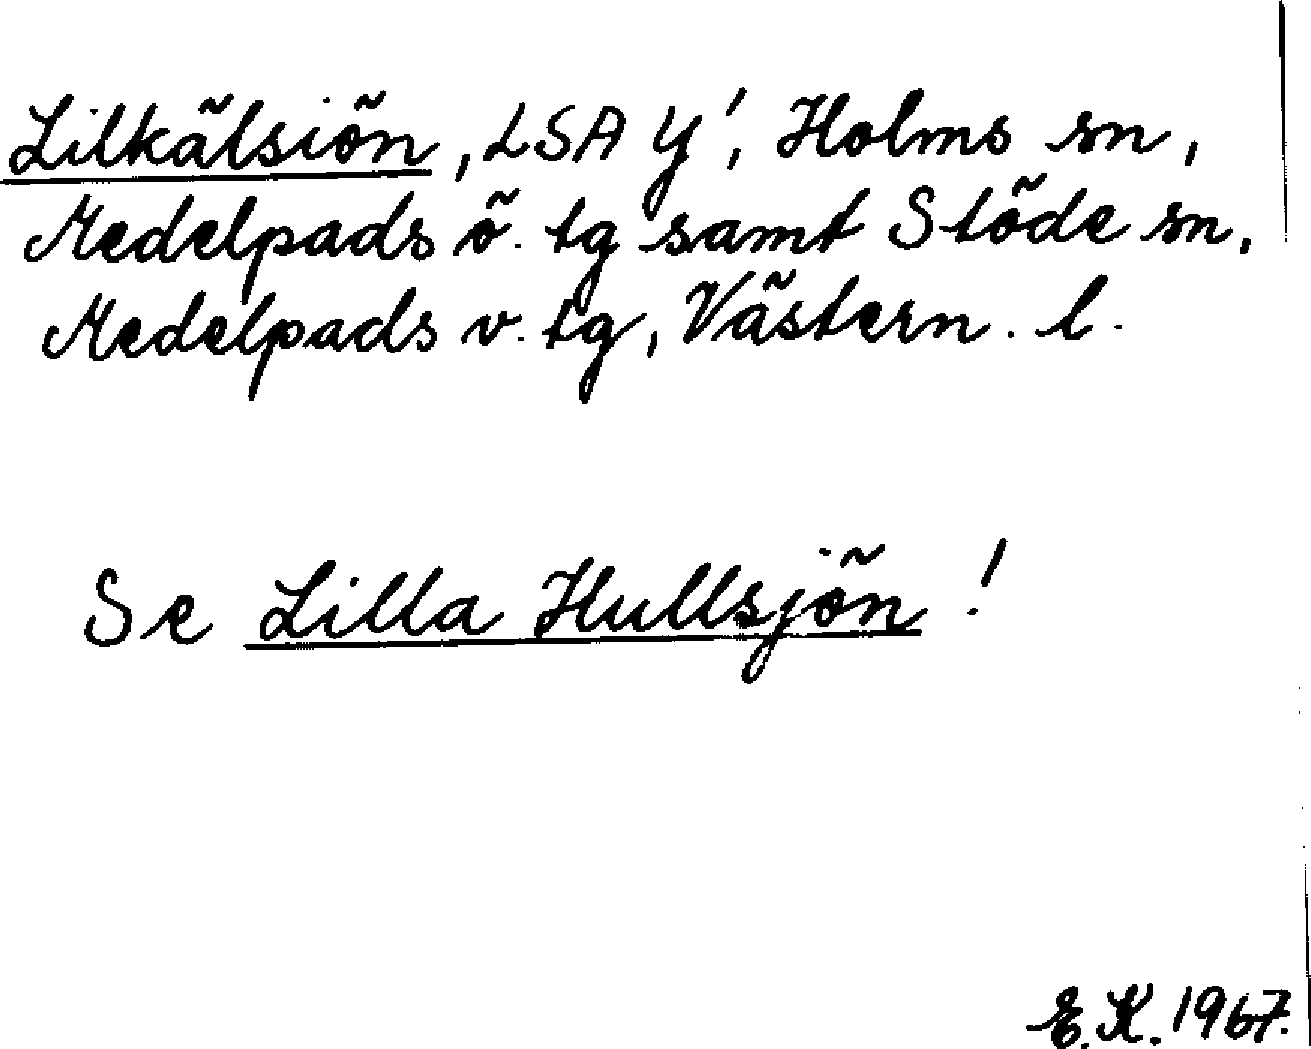 Lilkälsiön, LSA Y', Holms sn,
Medelpads ö. tg samt Stöde sn,
Medelpads v. tg, Västern. l.
Se Lilla Hullsjön!
E.K. 1967.